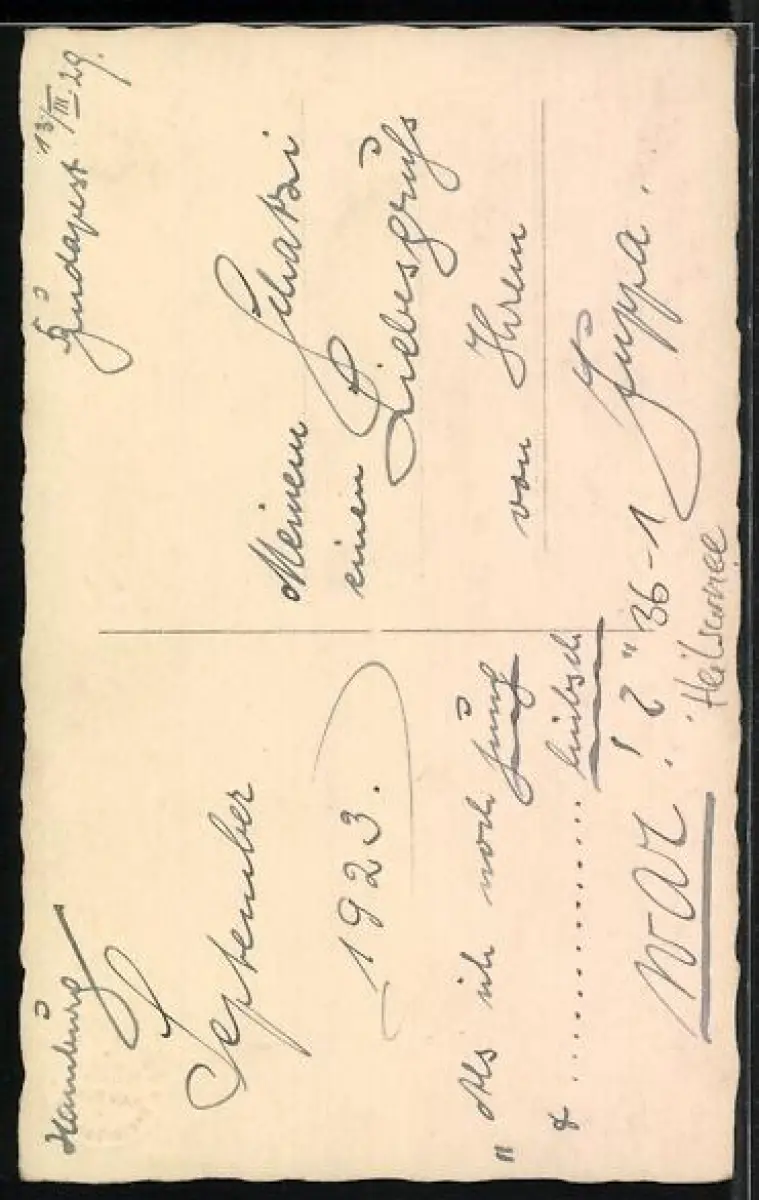 Hamburg
September
1923.
"Als ich noch jung
& ............ hübsch
war!?"
Budapest 13/III.29.
Meinem Schatzi
einen Liebesgruß
von Ihrem
Juppa.
36-1